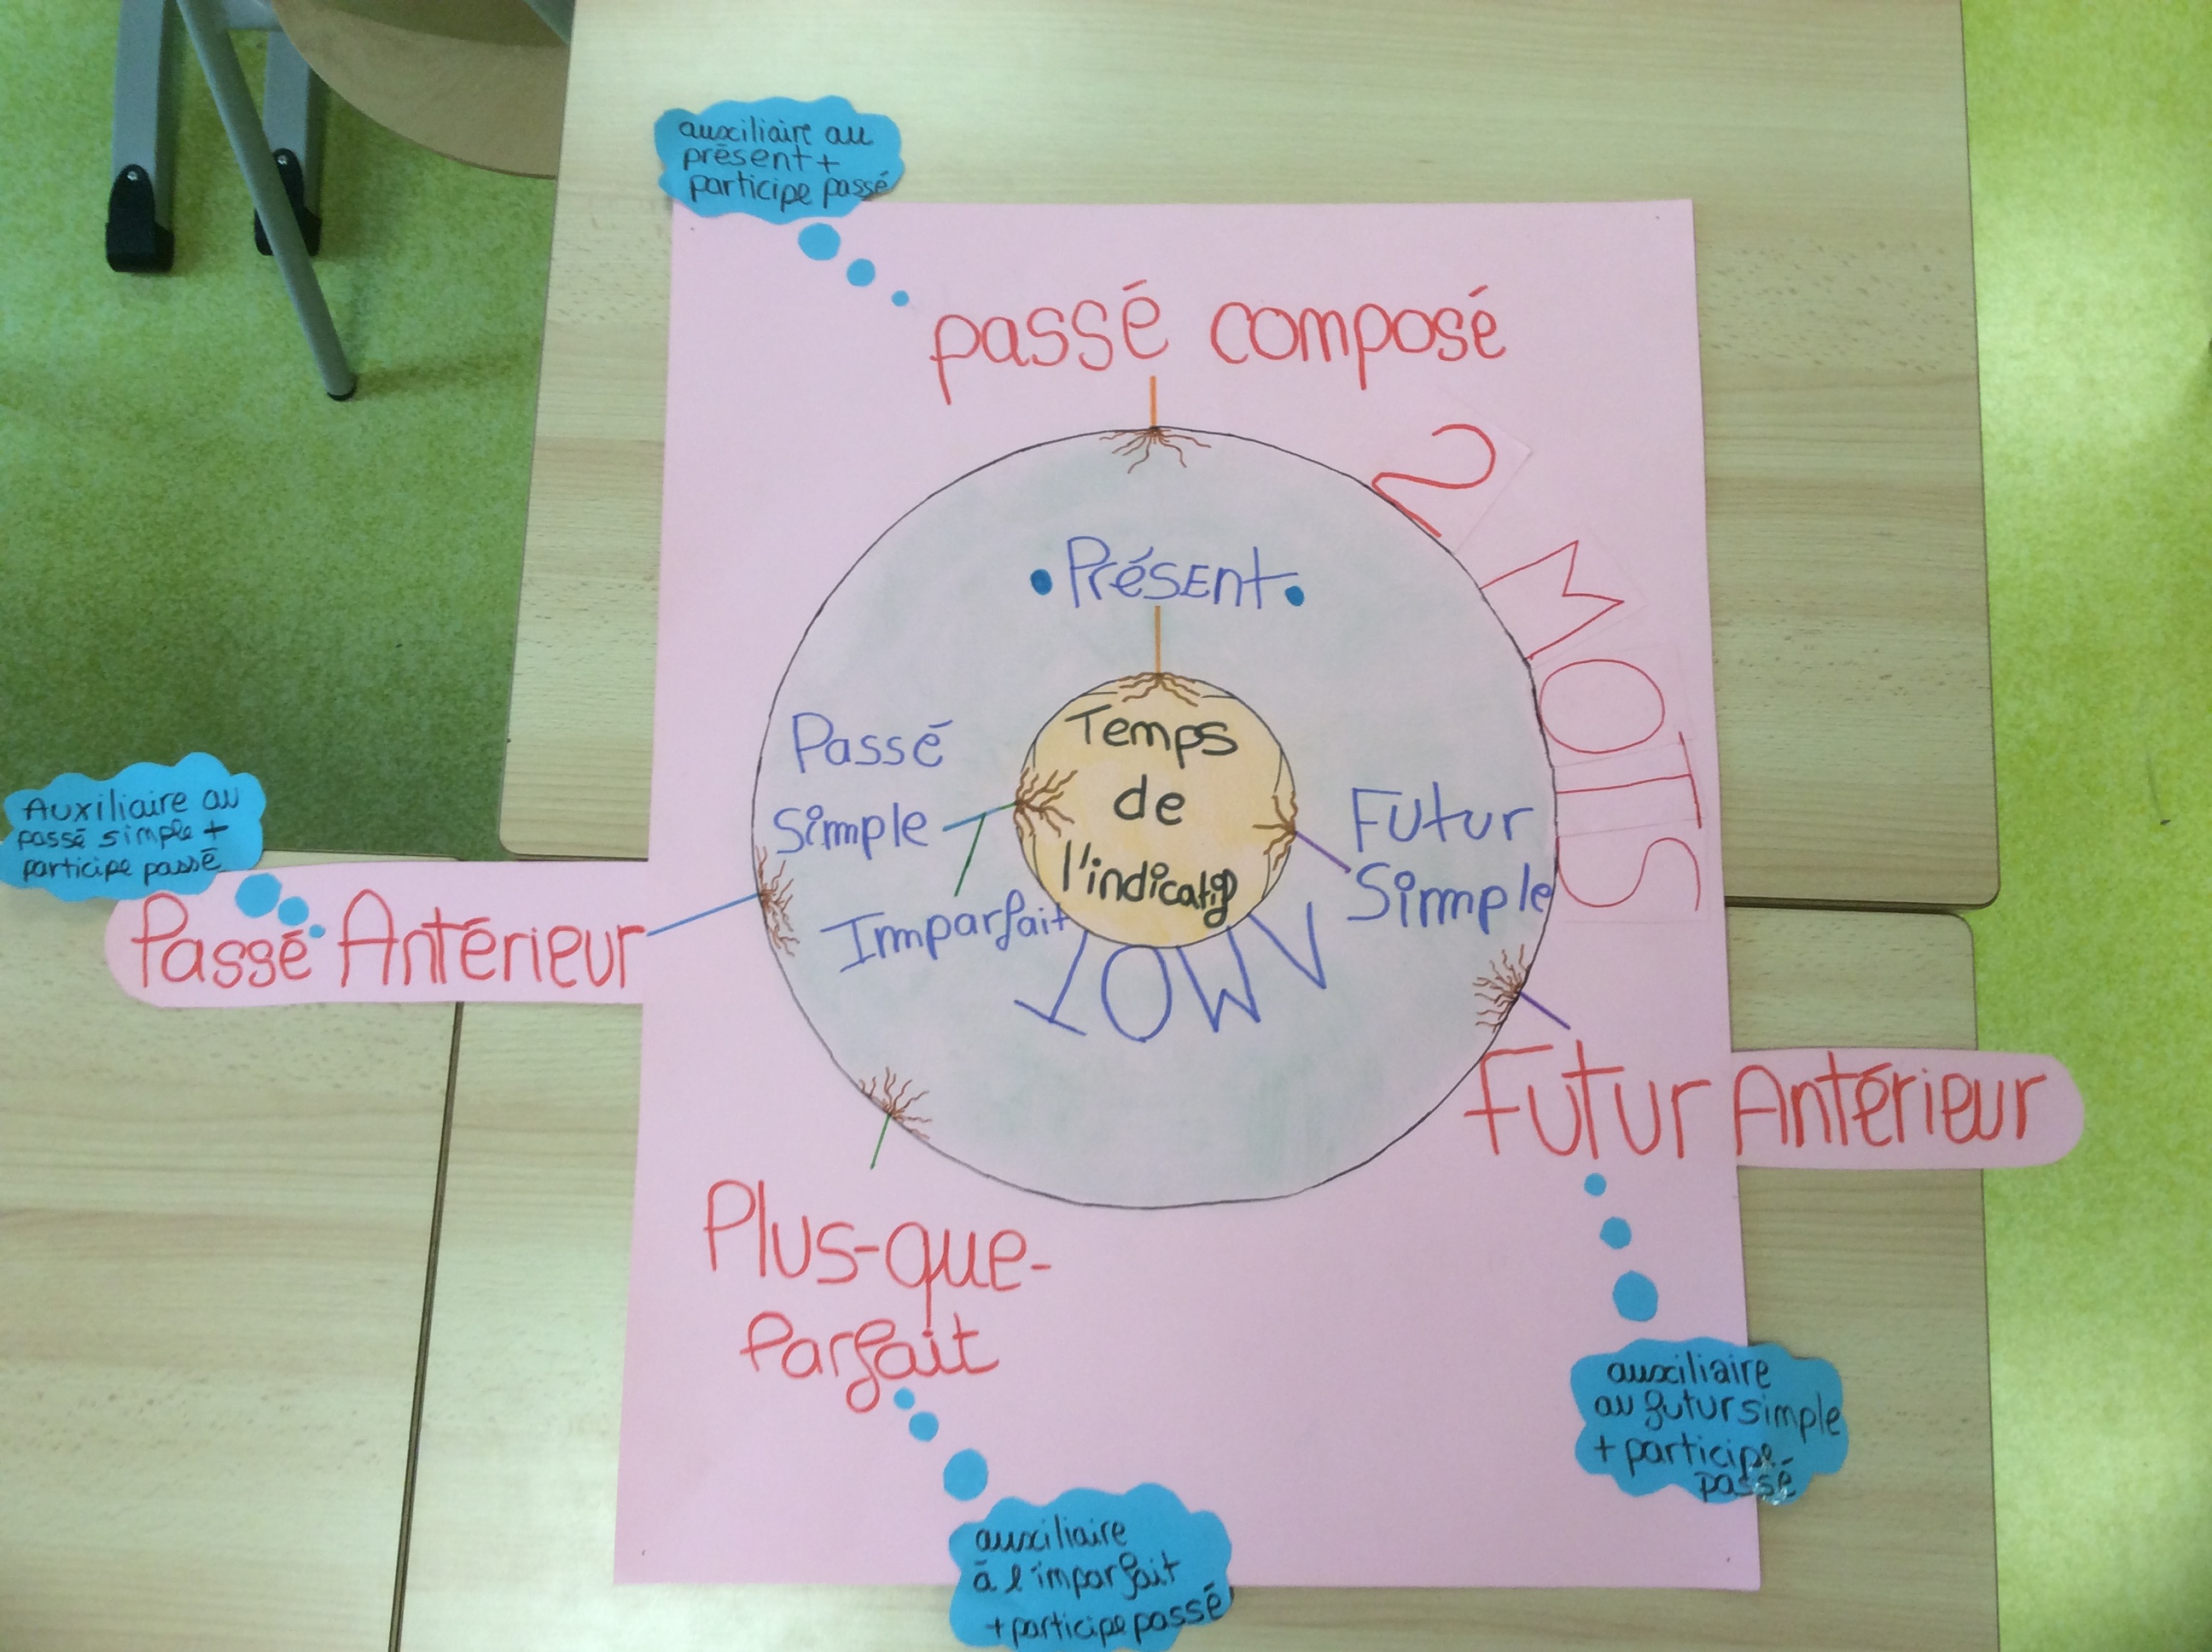 auxiliaire au
présent +
participe passé
passé composé
2 MOTS
Présent
Passé
Simple
Imparfait
Temps
de
l'indicatif
Futur
Simple
1 MOT
Auxiliaire au
passé simple +
participe passé
Passé Antérieur
Futur Antérieur
Plus-que-
Parfait
auxiliaire
au futur simple
+ participe
passé
auxiliaire
à l'imparfait
+ participe passé